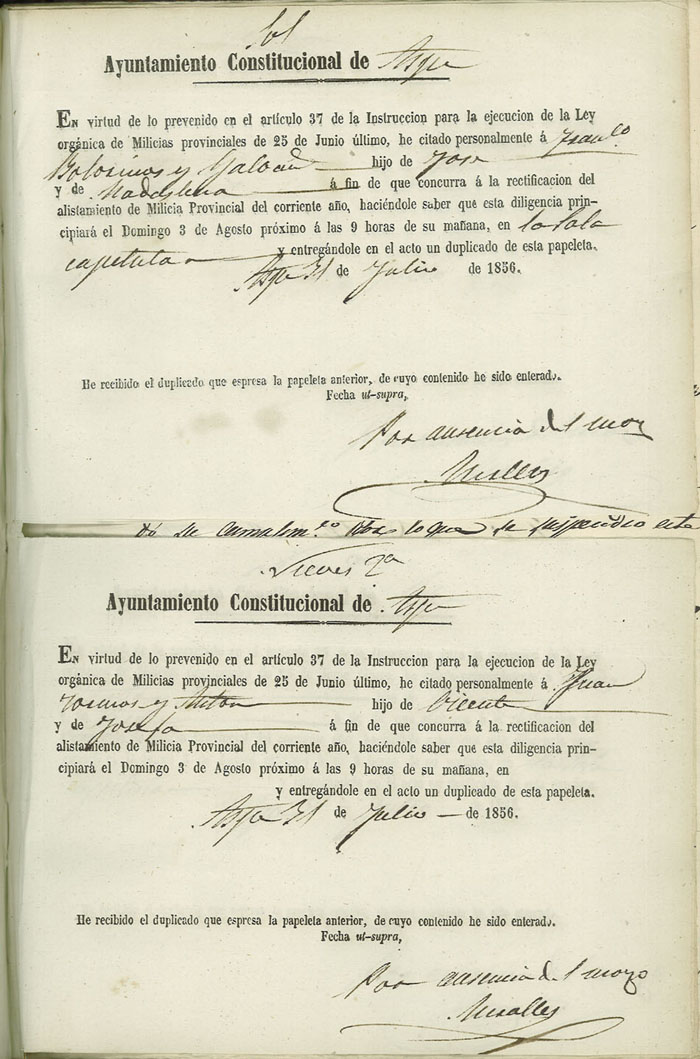 Sol
Ayuntamiento Constitucional de Aspe
EN virtud de lo prevenido en el artículo 37 de la Instruccion para la ejecucion de la Ley
orgánica de Milicias provinciales de 25 de Junio último, he citado personalmente á Franco.
y Galvañ hijo de Jose
y de Madalena á fin de que concurra á la rectificacion del
alistamiento de Milicia Provincial del corriente año, haciéndole saber que esta diligencia prin-
cipiará el Domingo 3 de Agosto próximo á las 9 horas de su mañana, en la Sala
capitula y entregándole en el acto un duplicado de esta papeleta.
Aspe 31 de Julio de 1856.
He recibido el duplicado que espresa la papeleta anterior, de cuyo contenido he sido enterado.
Fecha ut-supra,
Por ausencia del mozo
Miralles
se por lo que se suspendio este
Nieves 2a
Ayuntamiento Constitucional de Aspe
EN virtud de lo prevenido en el artículo 37 de la Instruccion para la ejecucion de la Ley
orgánica de Milicias provinciales de 25 de Junio último, he citado personalmente á Juan
y Anton hijo de Vicente
y de Josefa á fin de que concurra á la rectificacion del
alistamiento de Milicia Provincial del corriente año, haciéndole saber que esta diligencia prin-
cipiará el Domingo 3 de Agosto próximo á las 9 horas de su mañana, en
y entregándole en el acto un duplicado de esta papeleta.
Aspe 31 de Julio de 1856.
He recibido el duplicado que espresa la papeleta anterior, de cuyo contenido he sido enterado.
Fecha ut-supra,
Por ausencia del mozo
Miralles